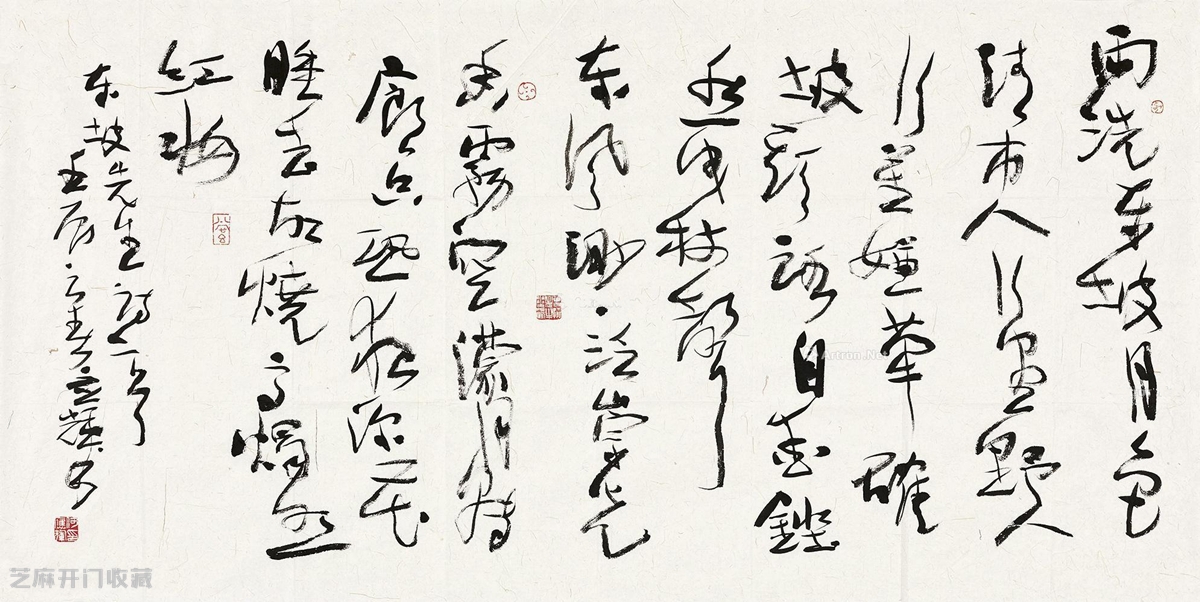 雨洗东坡月色
清市人行尽野人
行莫嫌荦确
坡头路自爱铿
然曳杖声
东风袅·泛崇光
香雾空濛月转
廊只恐夜深花
睡去故燒高燭照
红妆
东坡先生诗二首
壬辰
芝麻开门收藏
Artron.Net